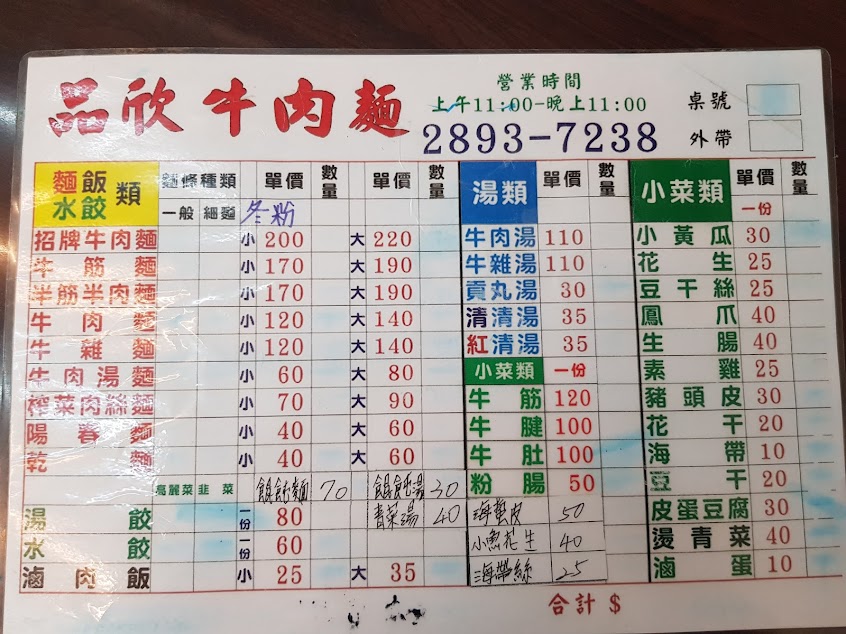 品欣牛肉麵
營業時間
上午11:00-晚上11:00
2893-7238
桌號
外帶
麵飯水餃類 麵條種類 單價 數量 單價 數量
一般 細麵 冬粉
招牌牛肉麵 小 200 大 220
牛筋麵 小 170 大 190
半筋半肉麵 小 170 大 190
牛肉麵 小 120 大 140
牛雜麵 小 120 大 140
牛肉湯麵 小 60 大 80
榨菜肉絲麵 小 70 大 90
陽春麵 小 40 大 60
乾麵 小 40 大 60
高麗菜 韭菜 餛飩麵 70 餛飩湯 30
青菜湯 40
湯餃 一份 80
水餃 一份 60
滷肉飯 小 25 大 35
湯類 單價 數量
牛肉湯 110
牛雜湯 110
貢丸湯 30
清清湯 35
紅清湯 35
小菜類 一份
牛筋 120
牛腱 100
牛肚 100
粉腸 50
海蜇皮 50
小魚花生 40
海帶絲 25
小菜類 單價 數量
一份
小黃瓜 30
花生 25
豆干絲 25
鳳爪 40
生腸 40
素雞 25
豬頭皮 30
花干 20
海帶 10
豆干 20
皮蛋豆腐 30
燙青菜 40
滷蛋 10
合計 $